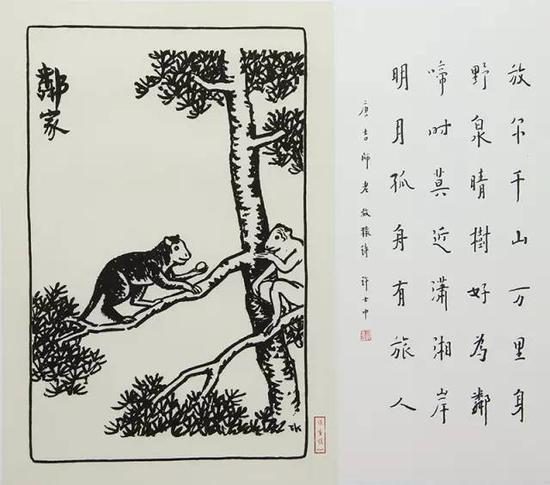 鄰家
TK
放尔千山万里身
野泉晴樹好為鄰
啼时莫近瀟湘岸
明月孤舟有旅人
唐吉師老放猿诗 许士中